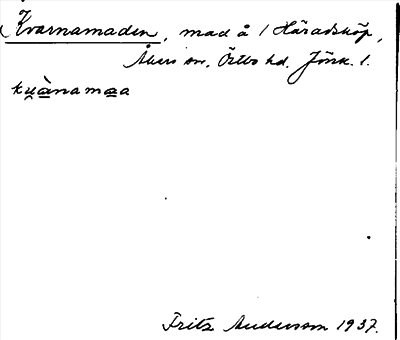 Kvarnamaden, mad å 1 Häradsköp,
Åkers sn, Östbo hd. Jönk. l.
ku̯ànamaa
Fritz Andersson 1937.